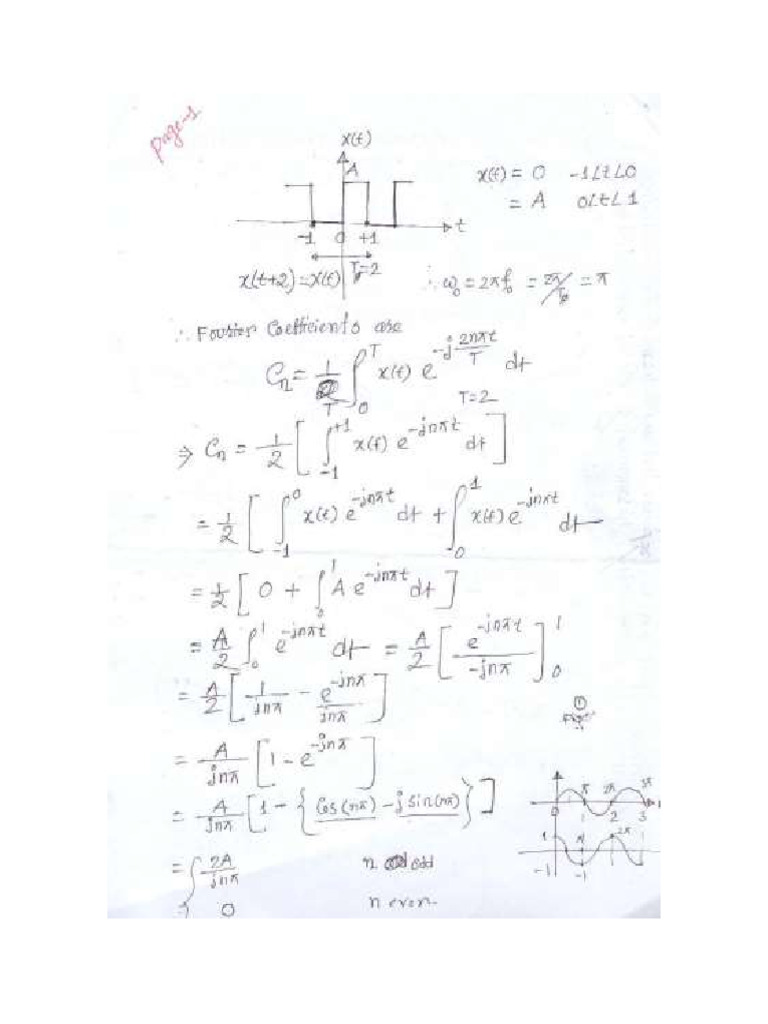 Page-1
x(t)
A
x(t) = 0 -1<t<0
= A 0<t<1
t
-1 0 +1
T₀=2
x(t+2)=x(t)
∴ ω₀ = 2πf₀ = 2π/T₀ = π
∴ Fourier Coefficients are
Cₙ = 1/T ∫₀ᵀ x(t) e^(-j 2nπt/T) dt
T=2
⇒ Cₙ = 1/2 [ ∫₋₁⁺¹ x(t) e^(-jnπt) dt ]
= 1/2 [ ∫₋₁⁰ x(t) e^(-jnπt) dt + ∫₀¹ x(t) e^(-jnπt) dt
= 1/2 [ 0 + ∫₀¹ A e^(-jnπt) dt ]
= A/2 ∫₀¹ e^(-jnπt) dt = A/2 [ e^(-jnπt) / -jnπ ]₀¹
= A/2 [ 1/jnπ - e^(-jnπ)/jnπ ]
①
= A/jnπ [ 1 - e^(-jnπ) ]
= A/jnπ [ 1 - { Cos(nπ) - j sin(nπ) } ]
π 2π 3π
0 1 2 3
1 π 2π
-1 -1
= { 2A/jnπ n odd
0 n even